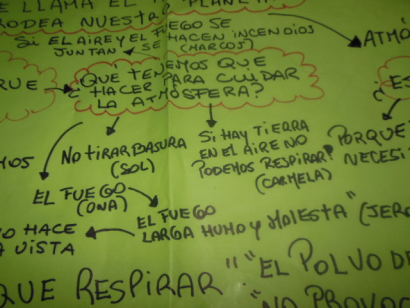 SE LLAMA EL
RODEA NUESTRA
SI EL AIRE Y EL FUEGO SE
JUNTAN SE HACEN INCENDIOS
(MARCOS)
ATMÓ
¿QUÉ TENEMOS QUE
HACER PARA CUIDAR
LA ATMÓSFERA?
NO TIRAR BASURA
(SOL)
SI HAY TIERRA
EN EL AIRE NO
PODEMOS RESPIRAR?
(CARMELA)
PORQUE
NECESI
EL FUEGO
(ONA)
EL FUEGO
LARGA HUMO Y MOLESTA" (JERO
NO HACE
LA VISTA
QUE RESPIRAR
"EL POLVO DE
"NO PROVO